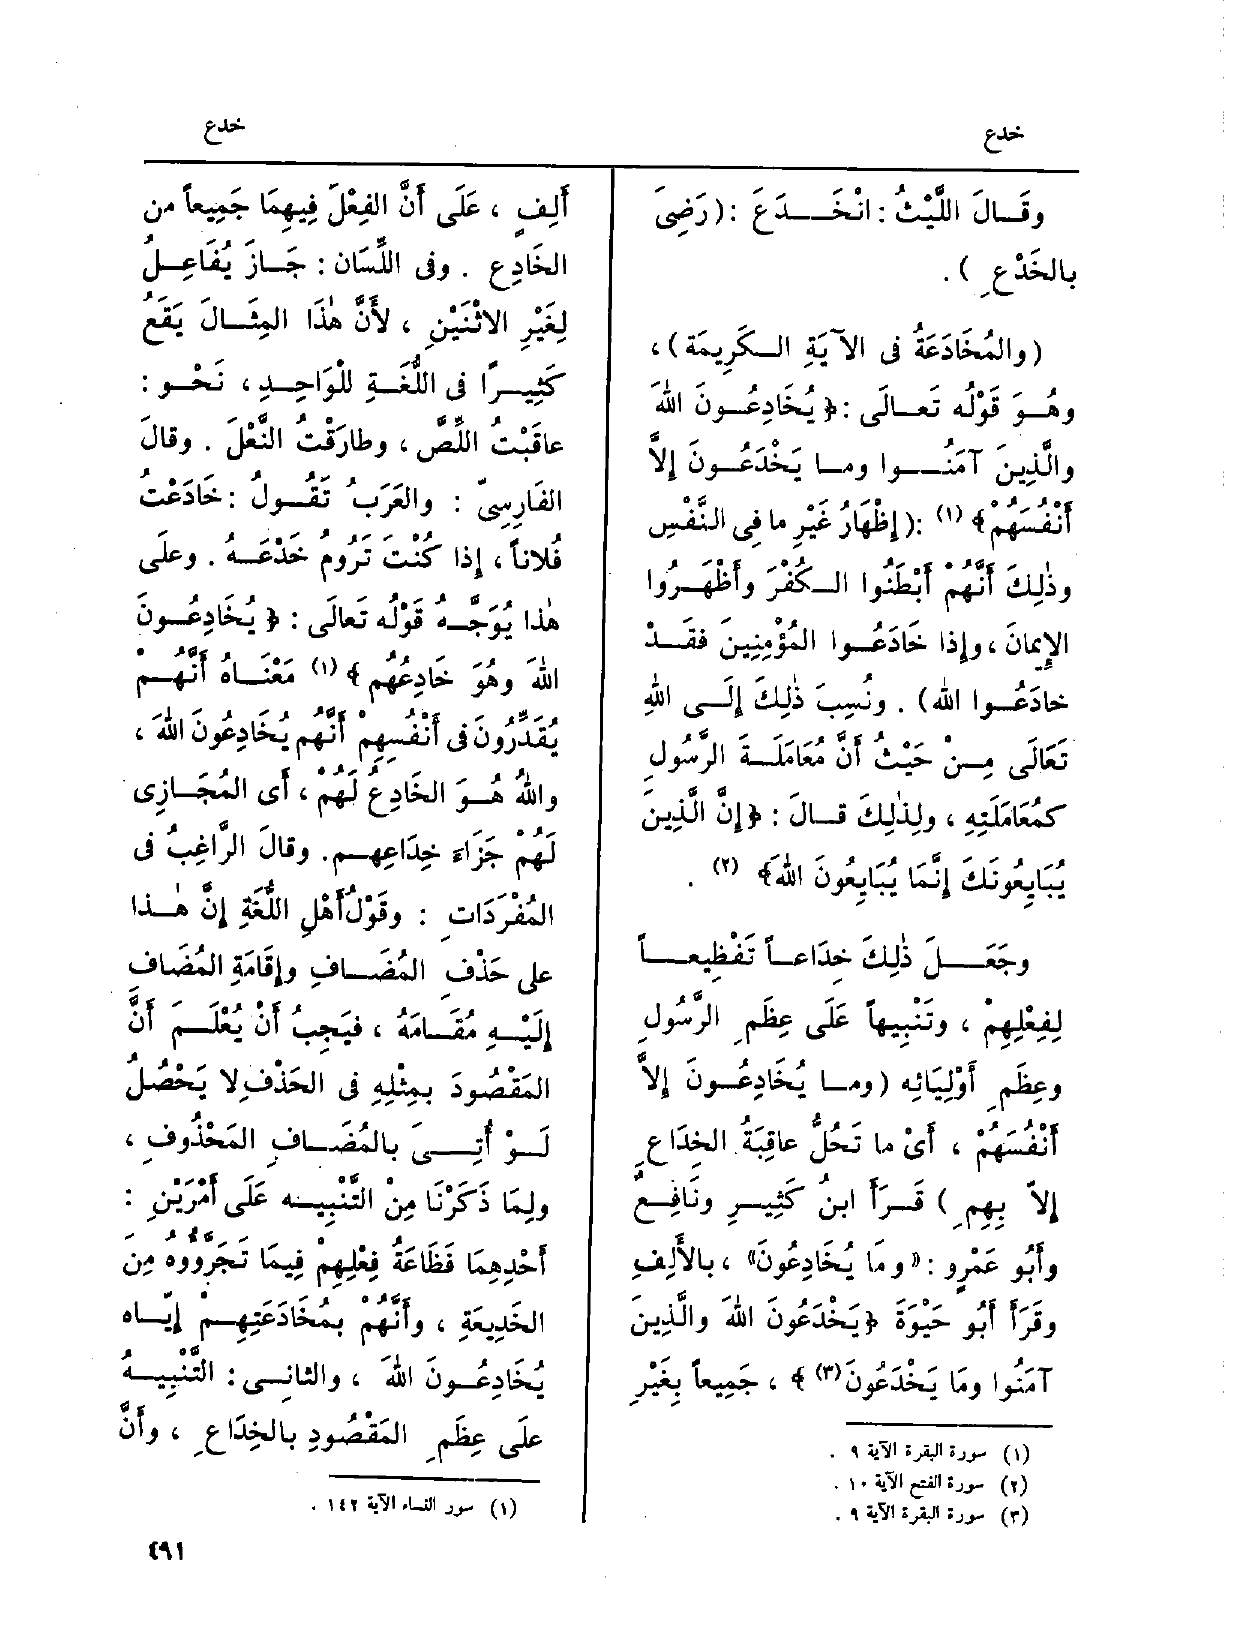 خدع
وقَالَ اللَّيْثُ : انْخَدَعَ :(رَضِىَ
بالخَدْعِ ) .
(والمُخَادَعَةُ فى الآيَةِ الكَرِيمَة) ،
وهُوَ قَوْلُه تَعالَى :﴿ يُخَادِعُونَ اللهَ
والَّذِينَ آمَنُوا وما يَخْدَعُونَ إلاَّ
أَنْفُسَهُم﴾ (١) :( إظْهَارُ غَيْرِ ما فِى النَّفْسِ
وذٰلِكَ أَنَّهُمْ أَبْطَنُوا الكُفْرَ وأَظْهَرُوا
الإيمَانَ ، وإذا خَادَعُوا المُؤْمِنِينَ فقَدْ
خادَعُوا الله) . ونُسِبَ ذٰلِكَ إلَى اللهِ
تَعَالَى مِنْ حَيْثُ أَنَّ مُعَامَلَةَ الرَّسُولِ
كمُعَامَلَتِهِ ، ولِذٰلِكَ قالَ : ﴿ إنَّ الَّذِينَ
يُبَايِعُونَكَ إنَّمَا يُبَايِعُونَ اللهَ﴾ (٢) .
وجَعَلَ ذٰلِكَ خِدَاعاً تَفْظِيعاً
لِفِعْلِهِمْ ، وتَنْبِيهاً عَلَى عِظَمِ الرَّسُولِ
وعِظَمِ أَوْلِيَائِه (ومـا يُخَادِعُونَ إلاَّ
أَنْفُسَهُمْ ، أَىْ ما تَحُلُّ عاقِبَةُ الخِدَاعِ
إلاَّ بِهِمِ ) قَرَأَ ابنُ كَثِيرٍ ونَافِعٌ
وأَبُو عَمْرٍو :«وَمَا يُخَادِعُونَ» ، بالأَلِفِ
وقَرَأَ أَبُو حَيْوَةَ ﴿يَخْدَعُونَ اللهَ والَّذِينَ
آمَنُوا ومَا يَخْدَعُونَ(٣)﴾ ، جَمِيعاً بِغَيْرِ
(١) سورة البقرة الآية ٩ .
(٢) سورة الفتح الآية ١٠ .
(٣) سورة البقرة الآية ٩ .
خدع
أَلِفٍ ، عَلَى أَنَّ الفِعْلَ فِيهِمَا جَمِيعاً من
الخَادِعِ . وفى اللِّسَان : جَازَ يُفَاعِلُ
لِغَيْرِ الاثْنَيْنِ ، لأَنَّ هٰذَا المِثَالَ يَقَعُ
كَثِيرًا فى اللُّغَةِ للْوَاحِدِ ، نَحْو :
عاقَبْتُ اللِّصَّ ، وطارَقْتُ النَّعْلَ . وقالَ
الفَارِسِىّ : والعَرَبُ تَقُولُ :خَادَعْتُ
فُلاناً ، إذا كُنْتَ تَرُومُ خَدْعَهُ . وعلَى
هٰذا يُوَجَّهُ قَوْلُه تَعالَى : ﴿ يُخَادِعُونَ
اللهَ وهُوَ خَادِعُهُم ﴾ (١) مَعْنَاه أَنَّهُمْ
يُقَدِّرُونَ فى أَنْفُسِهِمْ أَنَّهُم يُخَادِعُونَ اللهَ ،
واللهُ هُوَ الخَادِعُ لَهُمْ ، أَى المُجَازِى
لَهُمْ جَزَاءَ خِدَاعِهِم. وقالَ الرَّاغِبُ فى
المُفْرَدَاتِ : وقَوْلُ أَهْلِ اللُّغَةِ إنَّ هٰذا
على حَذْفِ المُضَافِ وإقَامَةِ المُضَافِ
إلَيْهِ مُقَامَهُ ، فيَجِبُ أَنْ يُعْلَمَ أَنَّ
المَقْصُودَ بمِثْلِهِ فى الحَذْفِ لا يَحْصُلُ
لَوْ أُتِىَ بالمُضَافِ المَحْذُوفِ ،
ولِمَا ذَكَرْنَا مِنْ التَّنْبِيه عَلَى أَمْرَيْنِ :
أَحْدِهِمَا فَظَاعَةُ فِعْلِهِمْ فِيمَا تَجَرَّوُوه مِن
الخَدِيعَةِ ، وأَنَّهُمْ بمُخَادَعَتِهِمْ إيَّاه
يُخَادِعُونَ اللهَ ، والثانِى : التَّنْبِيهُ
علَى عِظَمِ المَقْصُودِ بالخِدَاعِ ، وأَنَّ
(١) سور النساء الآية ١٤٢ .
٤٩١